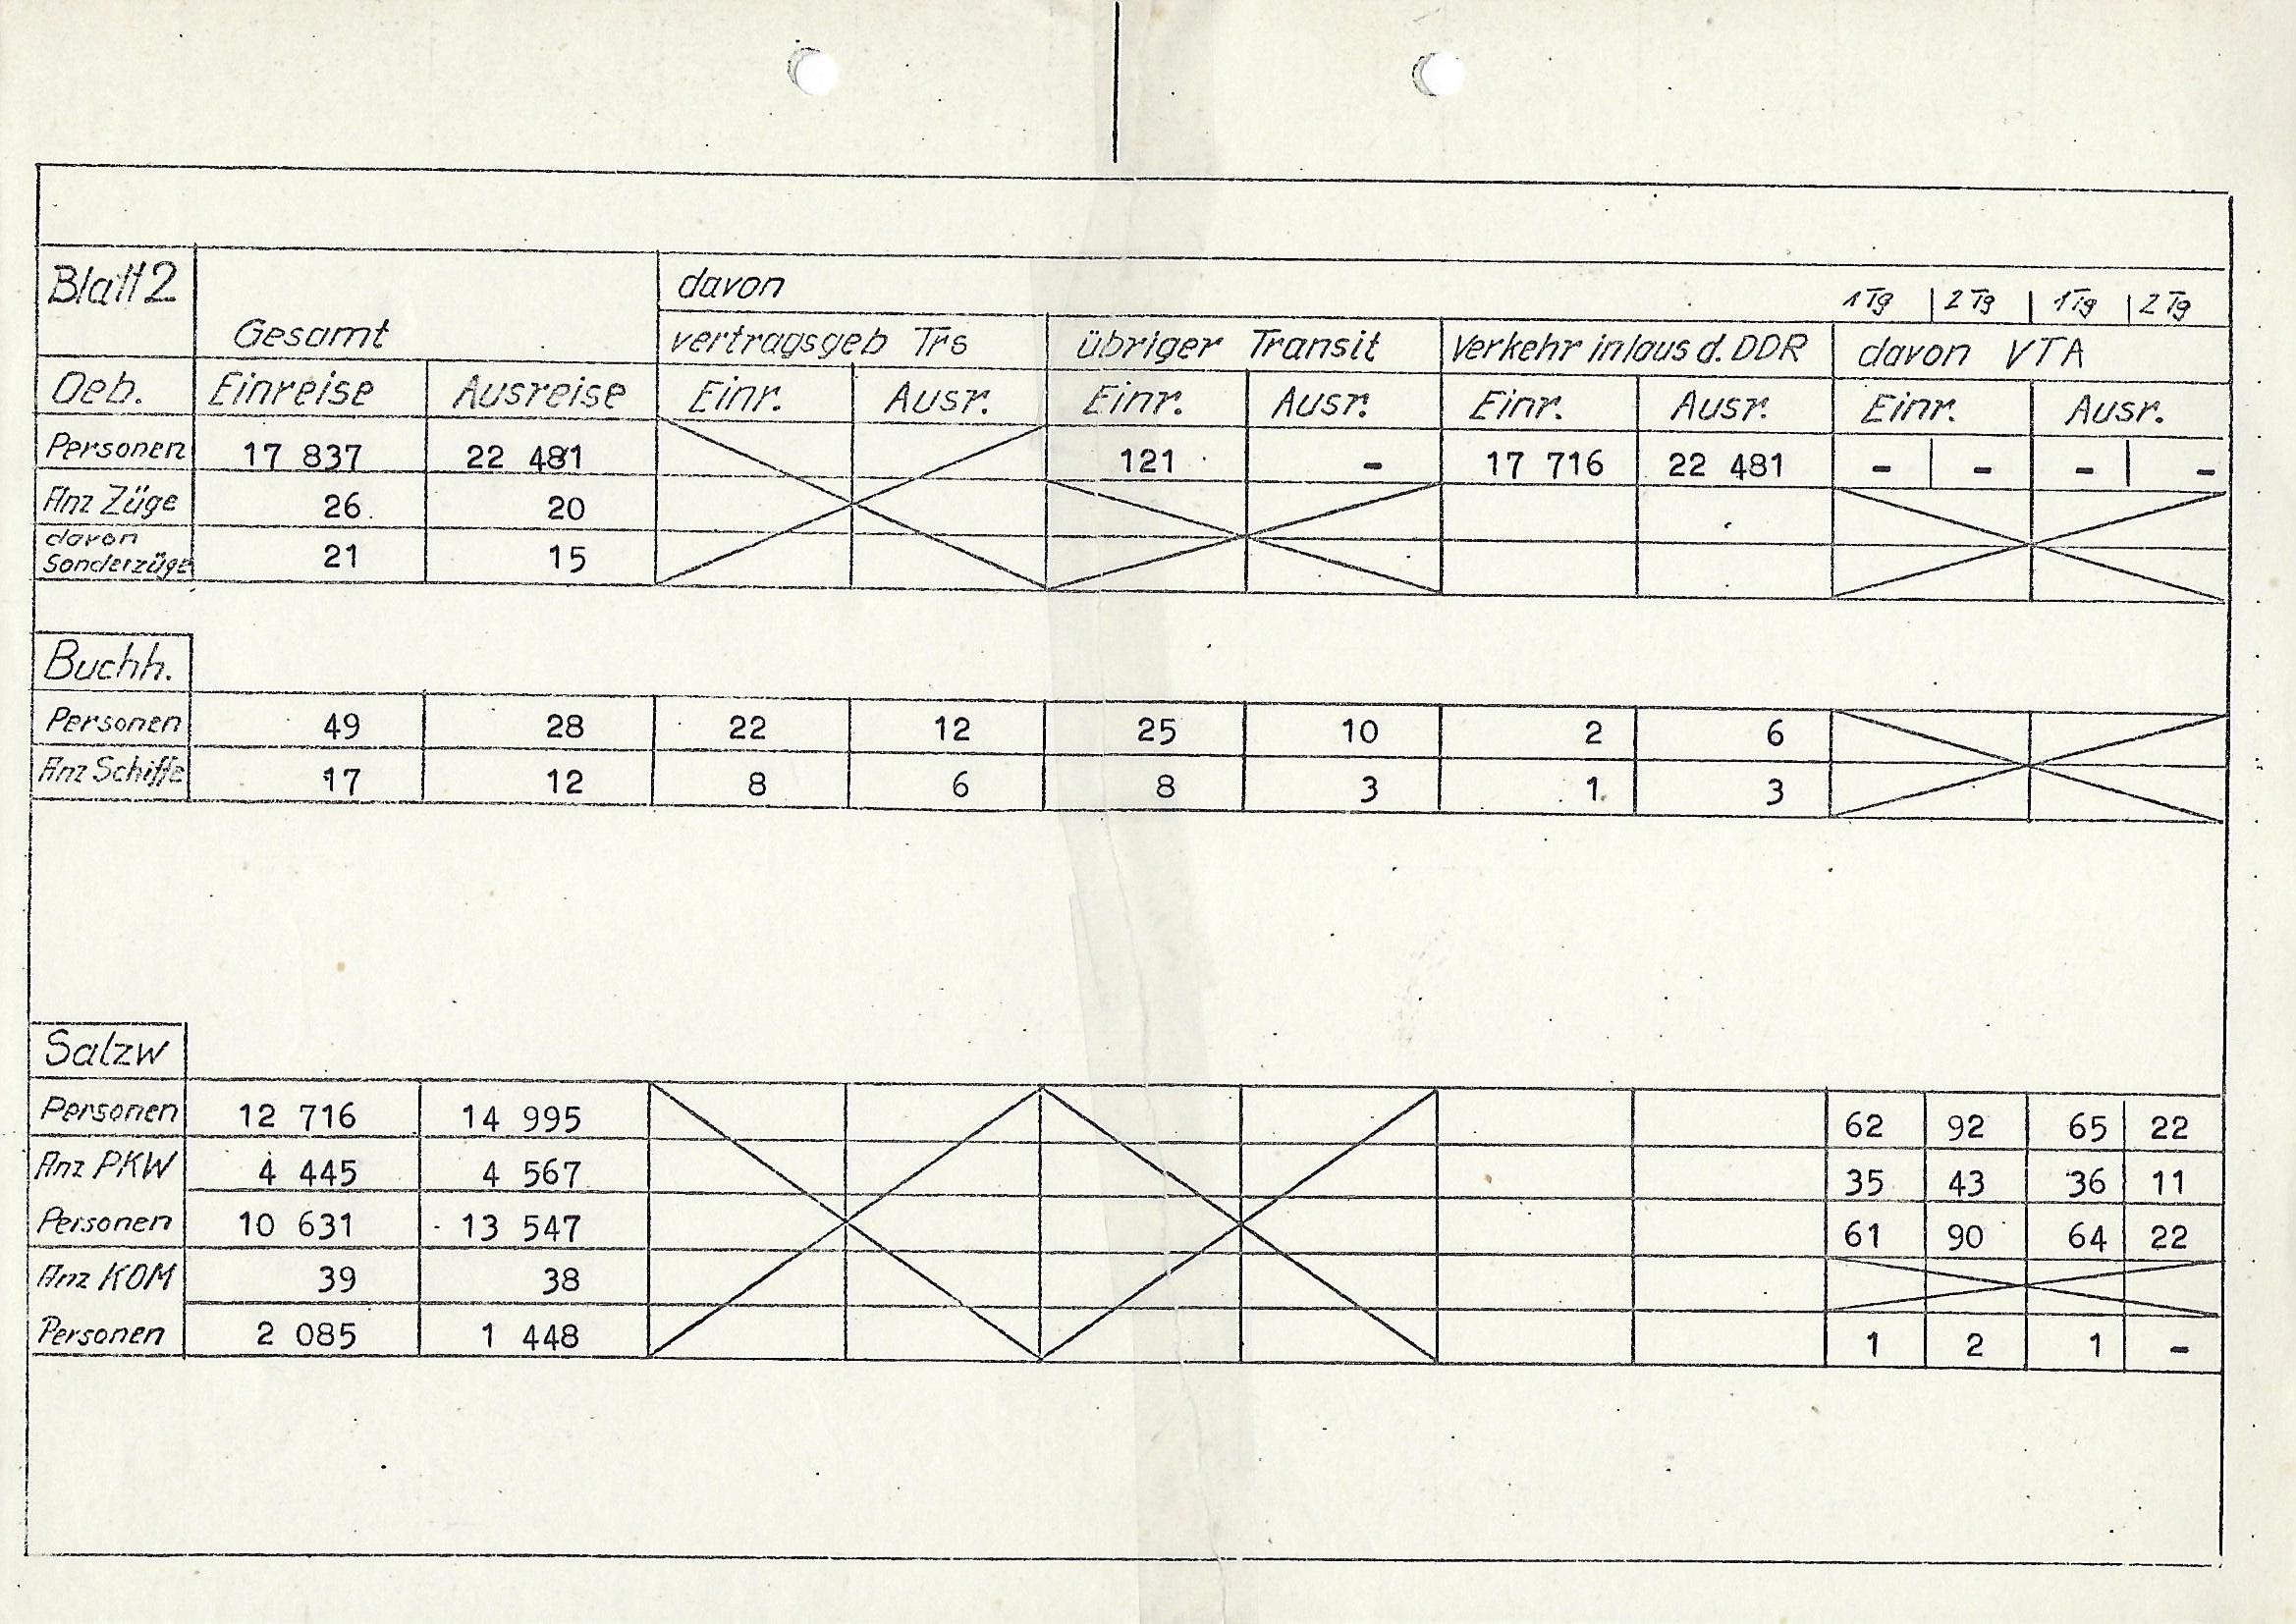 Blatt 2
davon
1 Tg | 2 Tg | 1 Tg | 2 Tg
Gesamt vertragsgeb Trs übriger Transit Verkehr in/aus d. DDR davon VTA
Oeb. Einreise Ausreise Einr. Ausr. Einr. Ausr. Einr. Ausr. Einr. Ausr.
Personen 17 837 22 481 121 - 17 716 22 481 - - - -
Anz Züge 26 20
davon
Sonderzüge 21 15
Buchh.
Personen 49 28 22 12 25 10 2 6
Anz Schiffe 17 12 8 6 8 3 1 3
Salzw
Personen 12 716 14 995 62 92 65 22
Anz PKW 4 445 4 567 35 43 36 11
Personen 10 631 13 547 61 90 64 22
Anz KOM 39 38
Personen 2 085 1 448 1 2 1 -